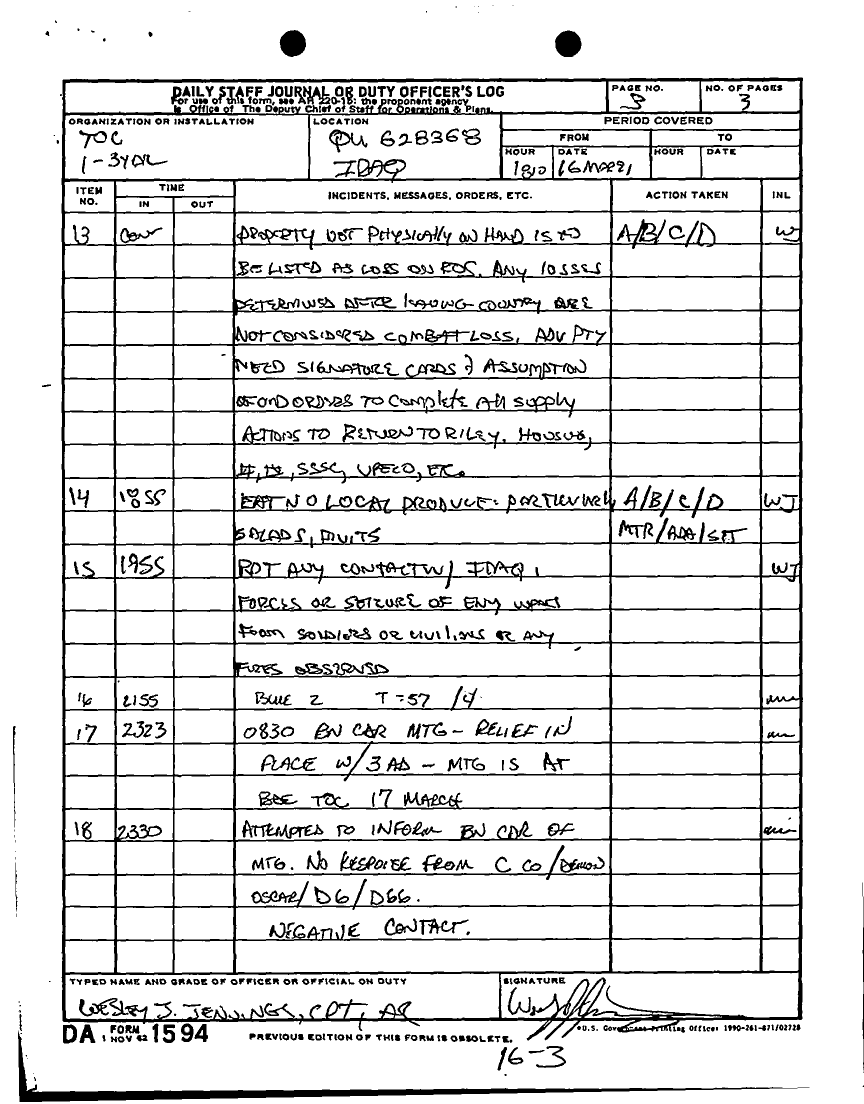 DAILY STAFF JOURNAL OR DUTY OFFICER'S LOG
For use of this form, see AR 220-15; the proponent agency
is Office of The Deputy Chief of Staff for Operations & Plans.
PAGE NO.
3
NO. OF PAGES
3
ORGANIZATION OR INSTALLATION
TOC
1-34AR
LOCATION
QU 628368
IRAQ
PERIOD COVERED
FROM
TO
HOUR
DATE
HOUR
DATE
16 MAR 91
ITEM NO.
TIME
IN
OUT
INCIDENTS, MESSAGES, ORDERS, ETC.
ACTION TAKEN
INL
13 CONT PROPERTY NOT PHYSICALLY ON HAND IS TO A/B/C/D WJ
BE LISTED AS LOSS ON ROS. ANY LOSSES
DETERMINED AFTER LEAVING COUNTRY ARE
NOT CONSIDERED COMBAT LOSS. ADV PTY
NEED SIGNATURE CARDS & ASSUMPTION
OF CMD ORDERS TO COMPLETE ALL SUPPLY
ACTIONS TO RETURN TO RILEY. HOUSING,
SSSC, ETC.
14 1855 EAT NO LOCAL PRODUCE: PARTICULARLY A/B/C/D WJ
SALADS, FRUITS MTR/ADA/SPT
15 1955 RPT ANY CONTACT W/ IRAQI WJ
FORCES OR SEIZURE OF ENY WPNS
FROM SOLDIERS OR CIVILIANS OR ANY
FIRES OBSERVED
16 2155 BLUE 2 T=57 /4
17 2323 0830 BN CDR MTG - RELIEF IN
PLACE W/ 3 AD - MTG IS AT
BDE TOC 17 MARCH
18 2330 ATTEMPTED TO INFORM BN CDR OF
MTG. NO RESPONSE FROM C CO/DEMON
OSCAR/D6/D66.
NEGATIVE CONTACT.
TYPED NAME AND GRADE OF OFFICER OR OFFICIAL ON DUTY
WESLEY J. JENNINGS, CPT, AR
SIGNATURE
DA FORM 1 NOV 62 1594
PREVIOUS EDITION OF THIS FORM IS OBSOLETE.
*U.S. Government Printing Office: 1990-261-871/02728
16-3